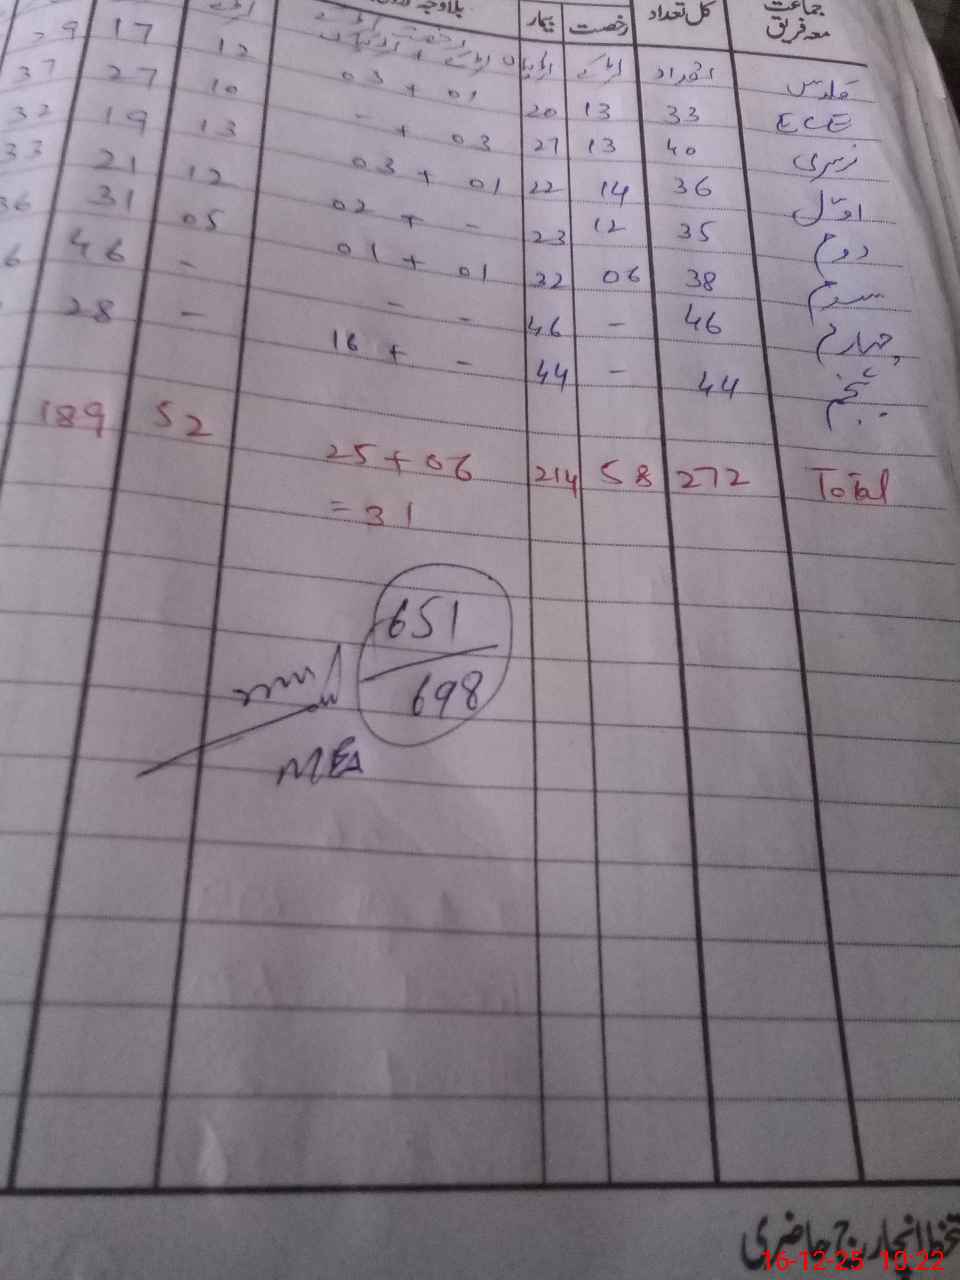 جماعت معہ فریق کل تعداد رخصت بیمار بلاوجہ
کلاس تعداد لڑکے لڑکیاں
ECE 33 13 20 03 + 01 12 17 29
نرسری 40 13 27 - + 03 10 27 37
اول 36 14 22 03 + 01 13 19 32
دوم 35 12 23 02 + - 12 21 33
سوم 38 06 32 01 + 01 05 31 36
چہارم 46 - 46 - - - 46 6
پنجم 44 - 44 16 + - - 28
Total 272 58 214 25 + 06 52 189
= 31
651
698
MEA
حاضری
16-12-25 10:22